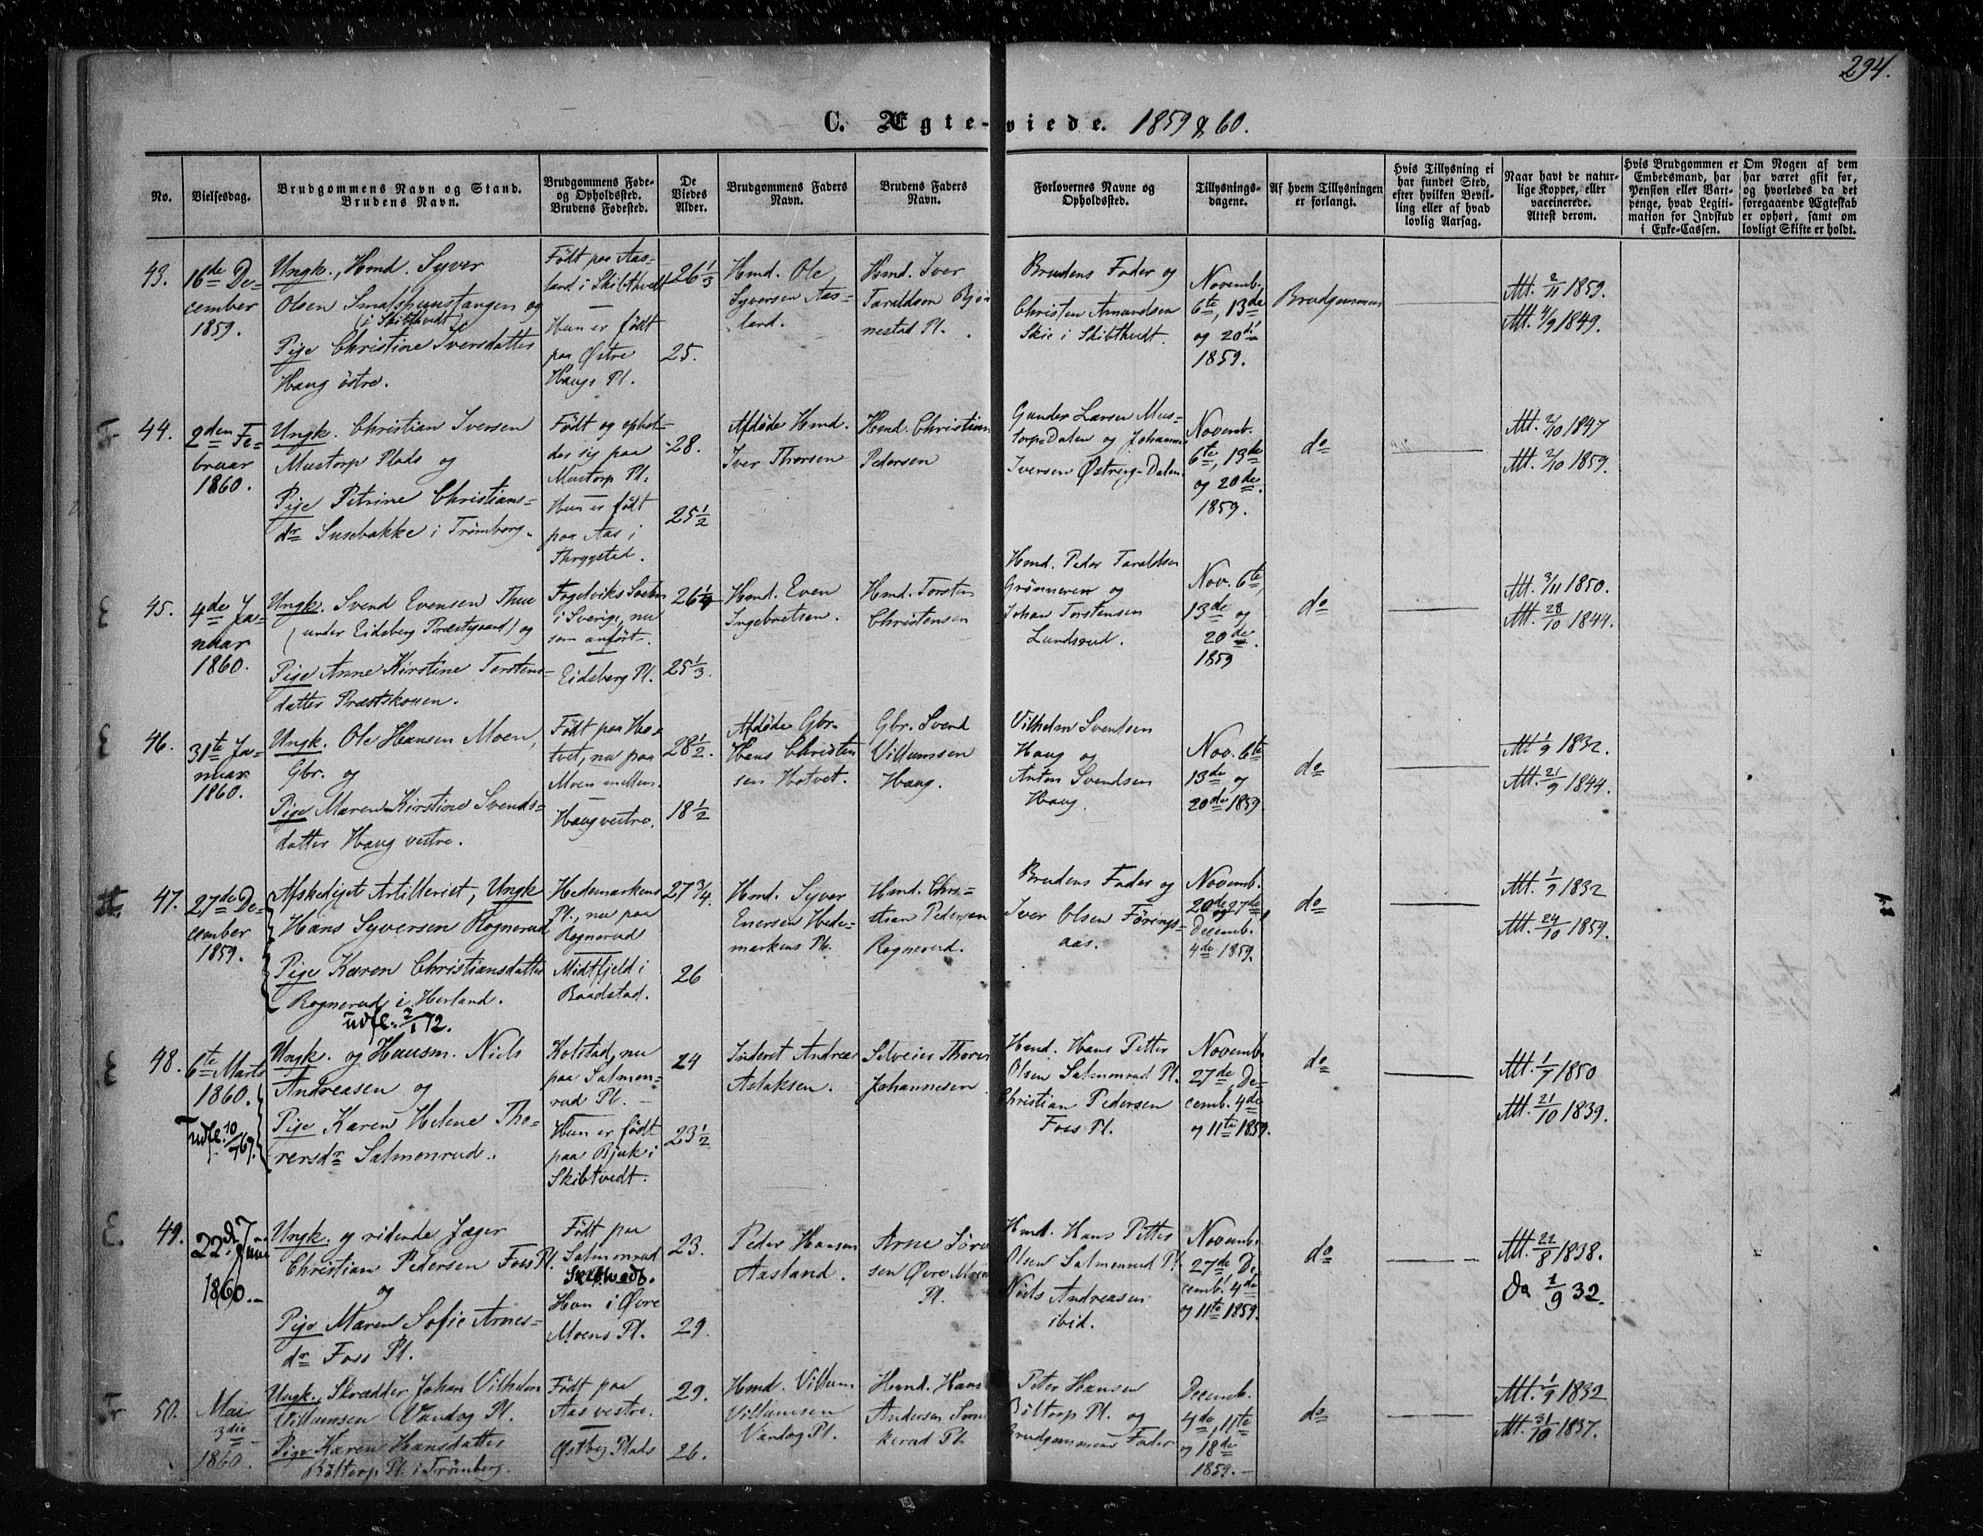 294.
C. Ægte-viede. 1859 & 60.
No.
Vielsesdag.
Brudgommens Navn og Stand.
Brudens Navn.
Brudgommens Føde-
og Opholdssted.
Brudens Fødested.
De
Viedes
Alder.
Brudgommens Faders
Navn.
Brudens Faders
Navn.
Forlovernes Navne og
Opholdssted.
Tillysnings-
dagene.
Af hvem Tillysningen
er forlangt.
Hvis Tillysning ei
har fundet Sted,
efter hvilken Bevil-
ling eller af hvad
lovlig Aarsag.
Naar havt de natur-
lige Kopper, eller
vaccinerede.
Attest derom.
Hvis Brudgommen er
Embedsmand, har
Pension eller Vart-
penge, hvad Legiti-
mation for Indskud
i Enke-Cassen.
Om Nogen af dem
har været gift før,
og hvorledes da det
foregaaende Ægteskab
er ophørt, samt om
lovligt Skifte er holdt.
43.
16de De-
cember
1859.
Ungk., Hmd. Syver
Olsen Smaspunstangen og
(i Skibthvedt)
Pige Christine Iversdatter
Haug østre.
Født paa Aas-
land i Skibthvedt
Hun er født
paa Østre
Haugs Pl.
26 1/3
25.
Hmd. Ole
Syversen Aas-
land.
Hmd. Iver
Taraldsen Bjør-
nestad Pl.
Brudens Fader og
Christen Amundsen
Skie i Skibthvedt.
Novemb.
6te, 13de
og 20de
1859.
Brudgommen
Att. 2/11 1859.
Att. 4/9 1849.
44.
2den Fe-
bruar
1860.
Ungk. Christian Iversen
Mustorp Plads og
Pige Petrine Christians-
dr Susebakke i Trømborg.
Født og ophol-
der sig paa
Mustorp Pl.
Hun er født
paa Aas i
Thrygstad.
28.
25 1/2
Afdøde Hmd.
Iver Thorsen
Hmd. Christian
Pedersen
Gunder Larsen Mus-
torp-Dalen og Johannes
Iversen Østreng-Dalen
Novemb.
6te, 13de
og 20de
1859.
do
Att. 2/10 1847
Att. 2/10 1859.
45.
4de Ja-
nuar
1860.
Ungk. Svend Evensen Thue
(under Eidsberg Præstegaard) og
Pige Anne Kirstine Torstens-
datter Præstskouen.
Fogelviks Sochn
i Sverige, nu
som anført.
Eidsberg Pl.
26 1/4
25 1/3.
Hmd. Even
Ingebretsen.
Hmd. Torsten
Christensen
Hmd. Peder Taraldsen
Grønneren og
Johan Torstensen
Lundsrud.
Nov. 6te,
13de og
20de
1859
do
Att. 3/11 1850.
Att. 28/10 1844.
46.
31te Ja-
nuar
1860.
Ungk. Ole Hansen Moen,
Gbr. og
Pige Maren Kirstine Svends-
datter Haug vestre.
Født paa Ho-
tvet, nu paa
Moen mellem.
Haug vestre.
28 1/2.
18 1/2
Afdøde Gbr.
Hans Christen
sen Hotvet.
Gbr. Svend
Villumsen
Haug.
Vilhelm Svendsen
Haug og
Anton Svendsen
Haug.
Nov. 6te
13de og
20de 1859.
do
Att. 1/9 1832.
Att. 21/9 1844.
47.
27de De-
cember
1859.
Afskediget Artillerist, Ungk
Hans Syversen Rognerud
Pige Karen Christiansdatter
Rognerud i Herland.
udfl. 2/1 72.
Hedemarkens
Pl., nu paa
Rognerud
Midtfjeld i
Baadstad.
27 3/4.
26
Hmd. Syver
Enersen Hede-
markens Pl.
Hmd. Chri-
stian Pedersen
Rognerud.
Brudens Fader og
Iver Olsen Førings-
aas.
Novemb.
20de og 27de,
Decemb.
4de 1859.
do
Att. 1/9 1832
Att. 24/10 1859.
48.
6te Marts
1860.
udfl. 10/ 69.
Ungk. og Huusm. Niels
Andreasen og
Pige Karen Helene Tho-
rersdr Salmonrud.
Kolstad, nu
paa Salmon-
rud Pl.
Hun er født
paa Bjuk i
Skibtvedt.
24
23 1/2
Inderst Andreas
Aslaksen.
Selveier Thorer
Johannesen
Hmd. Hans Petter
Olsen Salmonrud Pl.
Christian Pedersen
Foss Pl.
Novemb.
27de, De-
cemb. 4de
og 11te 1859.
do
Att. 1/7 1850
Att. 21/10 1839.
49.
22d Juni
1860.
Ungk. og ridende Jæger
Christian Pedersen Foss Pl.
og
Pige Maren Sofie Arnes-
dr Foss Pl.
Født paa
Salmonrud
Skibtvedt.
Hun i Øvre
Moens Pl.
23.
29.
Peder Hansen
Aasland.
Arne Søren
sen Øvre Moen
Pl.
Hmd. Hans Petter
Olsen Salmonrud Pl.
Niels Andreasen
ibid.
Novemb.
27de De-
cemb. 4de
og 11te 1859.
do
Att. 21/8 1838.
Da 1/9 32.
50.
Mai
3die
1860.
Ungk. Skrædder Johan Vilhelm
Villumsen Vandog Pl.
Pige Karen Hansdatter
Bøltorp Pl. i Trømborg
Født paa
Aas vestre.
Østbye Plads
29.
26.
Hmd. Villum
Villumsen
Vandog Pl.
Hmd. Hans
Andersen
kerud Pl.
Petter Hansen
Bøltorp Pl. og
Brudgommens Fader
Decemb.
4de, 11te
og 18de
1859.
do
Att. 1/9 1832
Att. 31/10 1837.